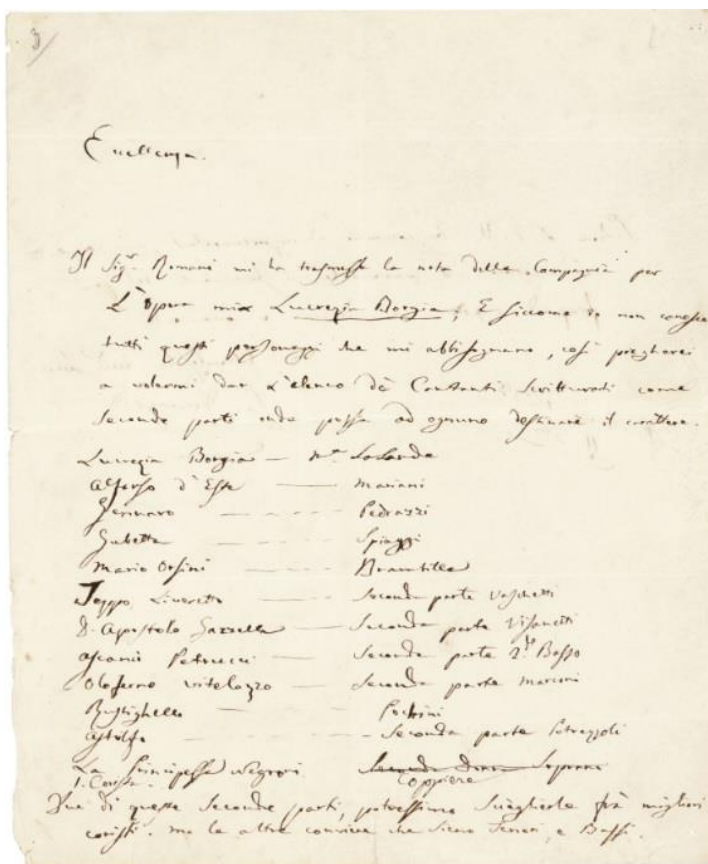 3/
Eccellenza.
Il Sigr. Romani mi ha trasmesso la nota della Compagnia per
L'opera mia Lucrezia Borgia; E siccome io non conosco
tutti questi personaggi che mi abbisognano, così pregherei
a volermi dar L'elenco de Cantanti scritturati come
seconde parti onde possa ad ognuno destinare il carattere.
Lucrezia Borgia — Me. Lalande
Alfonso d'Este — Mariani
Gennaro — Pedrazzi
Gubetta — Spiaggi
Maffio Orsini — Brambilla
Jeppo Liveretto — Seconda parte Vaschetti
D. Apostolo Gazzella — Seconda parte Visanetti
Ascanio Petrucci — Seconda parte 2do. Basso
Oloferno Vitelozzo — Seconda parte Marconi
Rustighello — Pochini
Astolfo — Seconda parte Petrazzoli
La Principessa Negroni — Seconda Donna Soprano
1. Corista. Coppiere
Due di queste seconde parti, potressimo sceglierle frà migliori
coristi. ma le altre conviene che sieno Tenori, e Bassi.